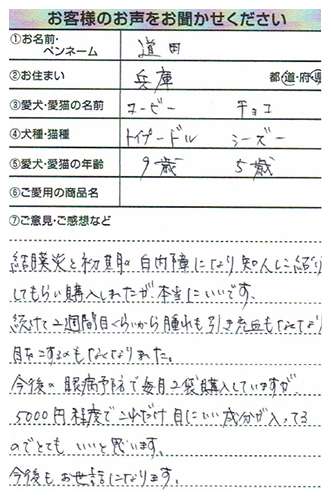 お客様のお声をお聞かせください
①お名前・
ペンネーム
道田
②お住まい
兵庫
都道府県
③愛犬・愛猫の名前
コービー チョコ
④犬種・猫種
トイプードル シーズー
⑤愛犬・愛猫の年齢
9歳 5歳
⑥ご愛用の商品名
⑦ご意見・ご感想など
結膜炎と初期の白内障になり知人に紹介
してもらい購入しましたが、本当にいいです。
続けて2週間目くらいから腫れも引き充血もなくなり
目をこするのもなくなりました。
今後の眼病予防で毎月2袋購入していますが、
5000円程度でこれだけ目にいい成分が入ってる
のでとてもいいと思います。
今後もお世話になります。